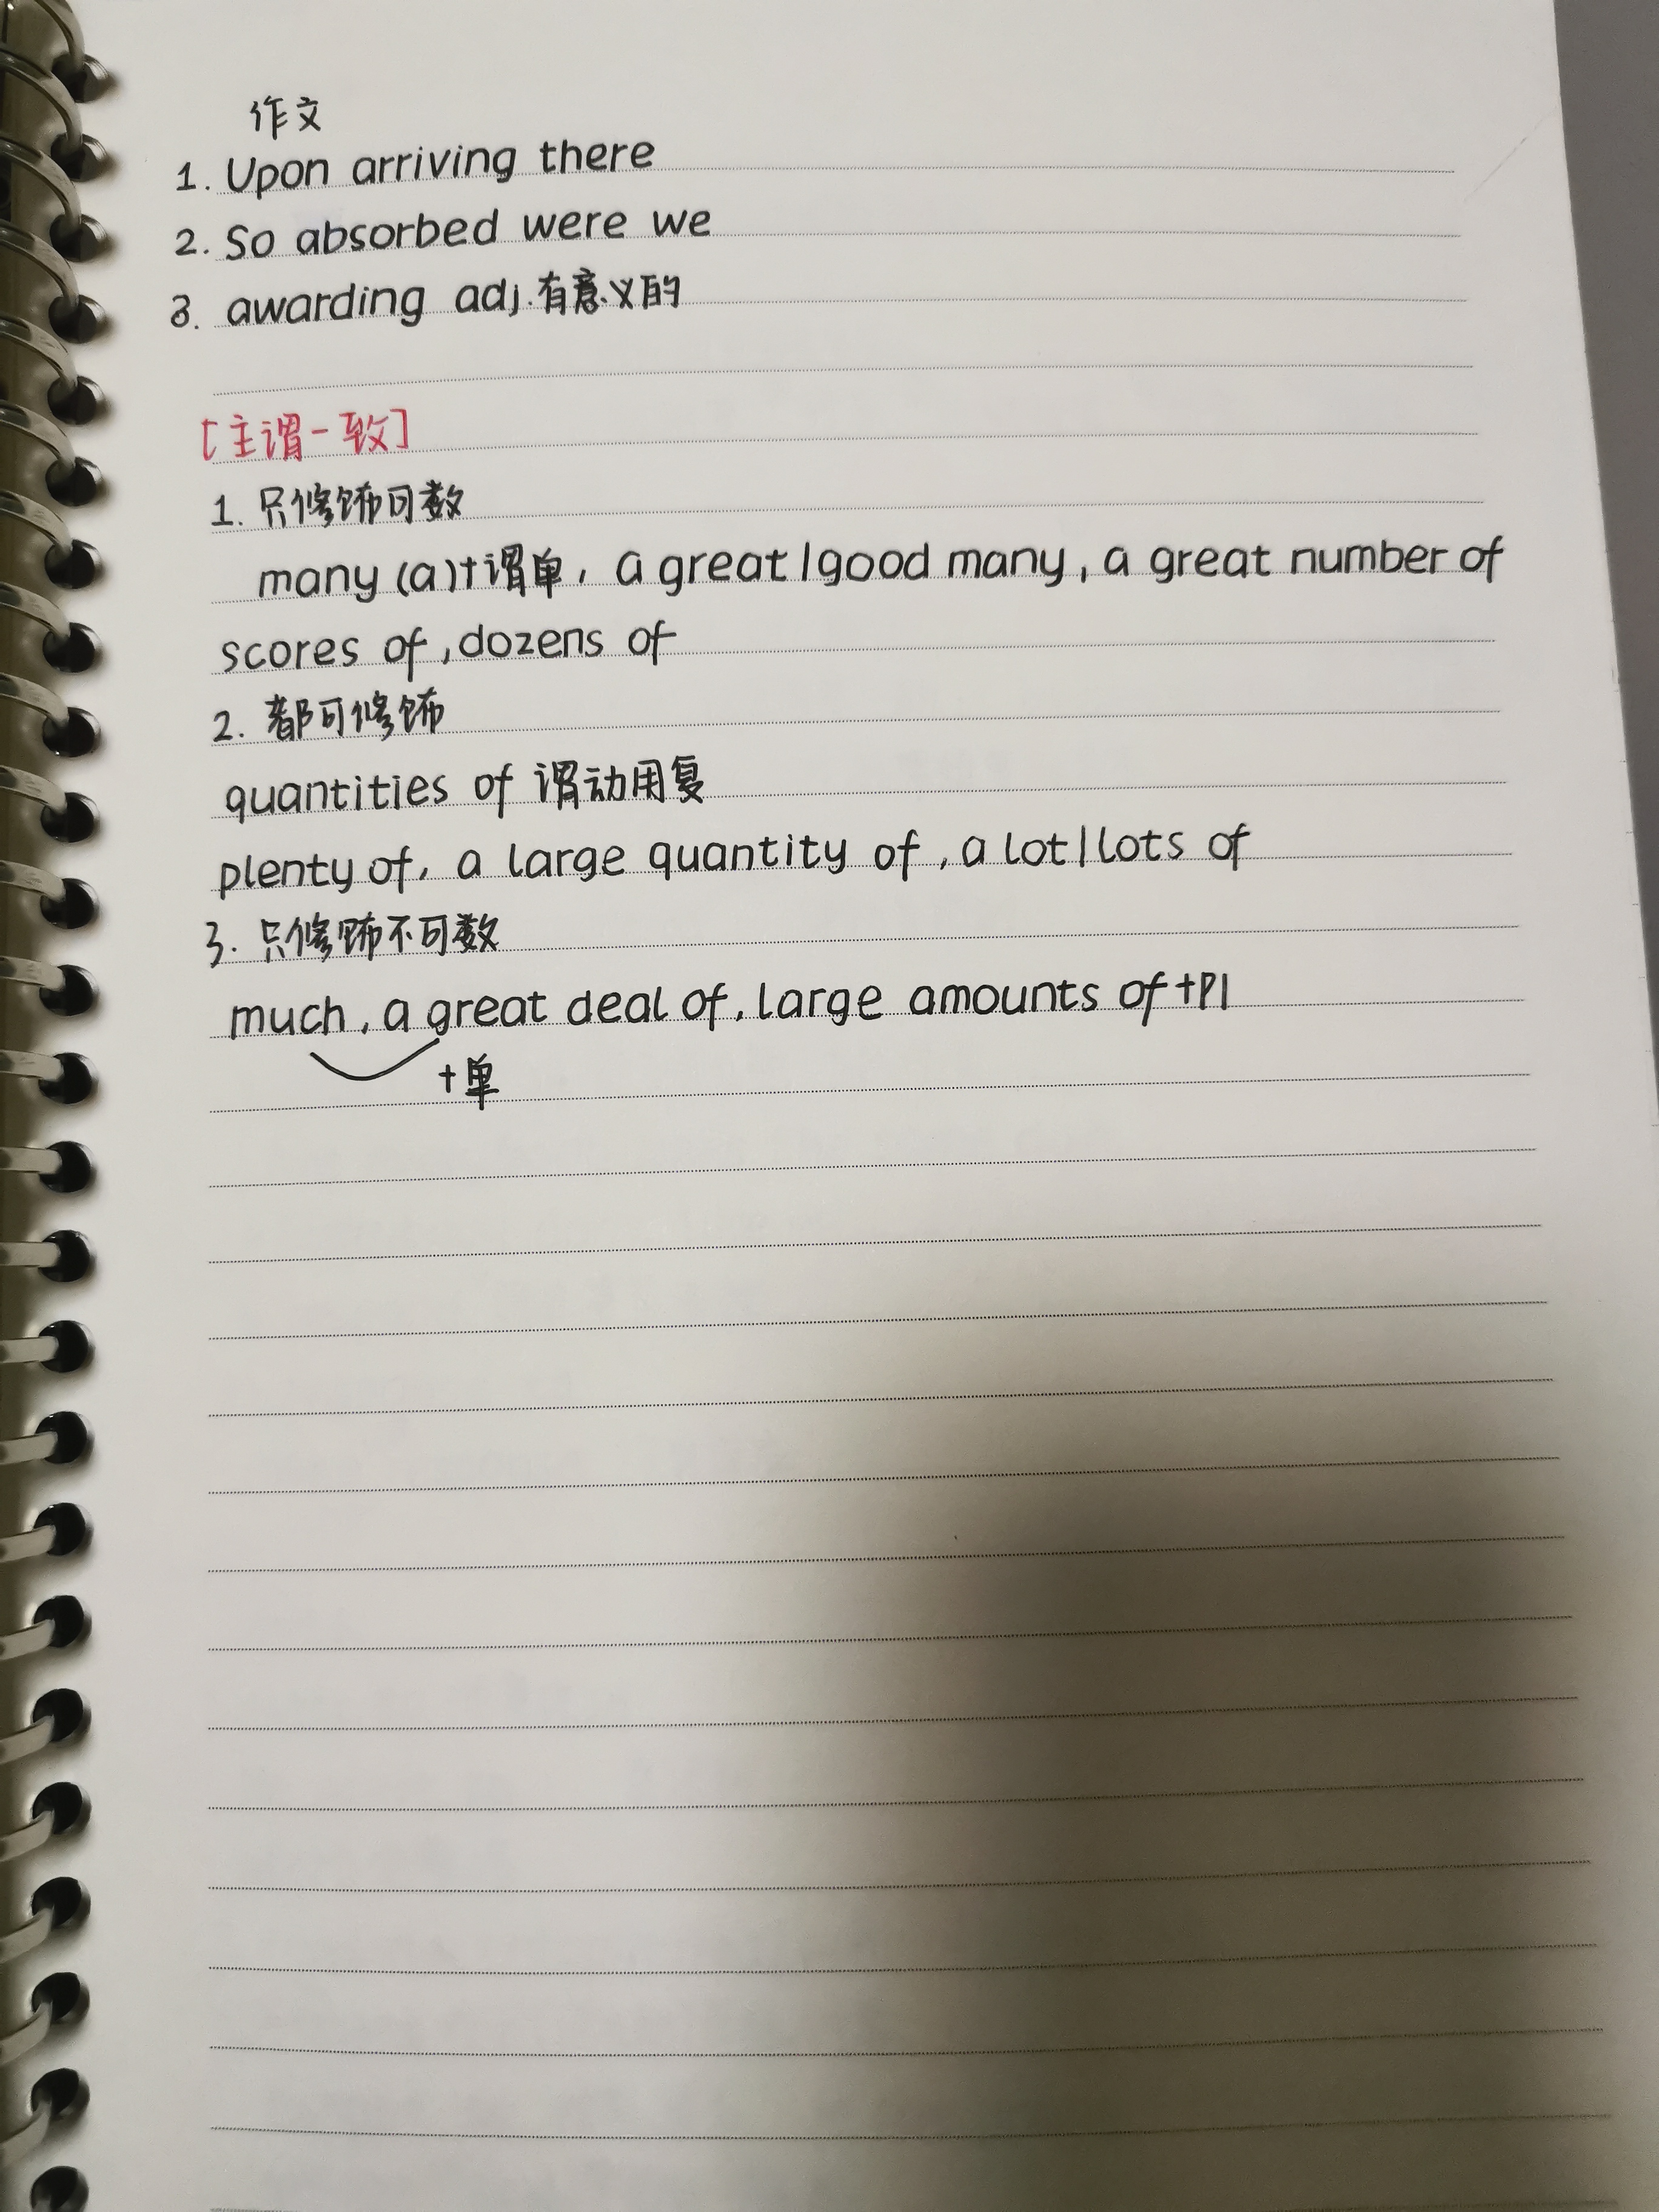 作文
1. Upon arriving there
2. So absorbed were we
3. awarding adj.有意义的
[主谓一致]
1. 只修饰可数
many (a)+谓单, a great/good many, a great number of
scores of, dozens of
2. 都可修饰
quantities of 谓动用复
plenty of, a large quantity of, a lot/lots of
3. 只修饰不可数
much, a great deal of, large amounts of +Pl
+单